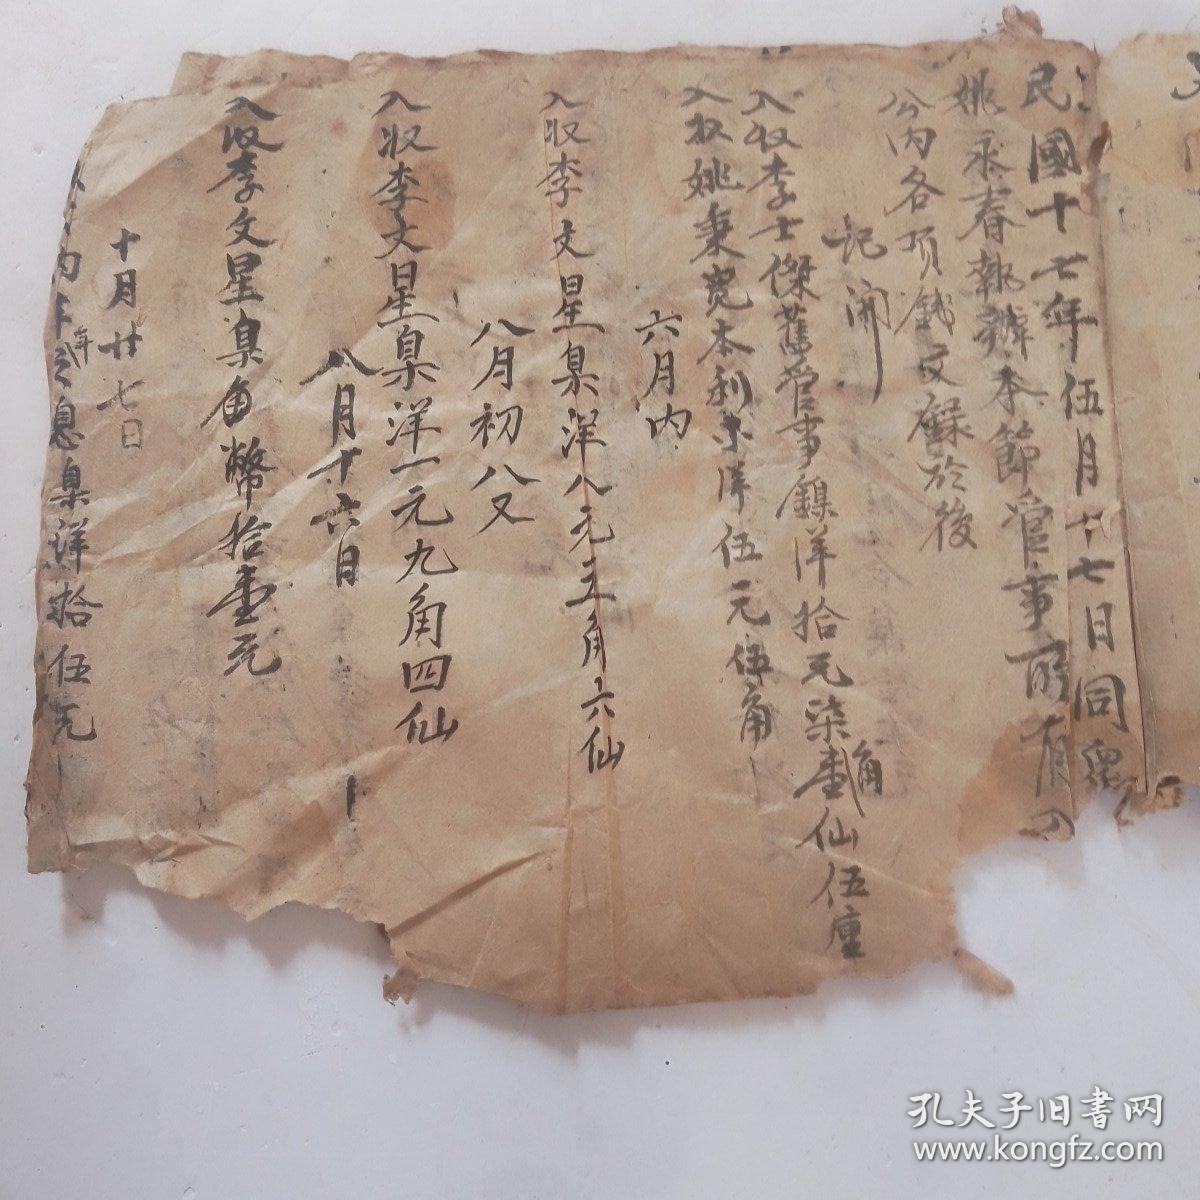 民國十七年伍月十七日同眾
姚永春報辦本節管事所有
公内各項錢文錄於後
記開
入收李士傑舊管事鎳洋拾元柒角壹仙伍厘
入收姚秉寬本利洋伍元伍角
六月内
入收李文星臬洋八元五角六仙
八月初八又
入收李文星臬洋一元九角四仙
八月十六日
入收李文星臬角幣拾壹元
十月廿七日
息臬洋拾伍元
孔夫子旧书网
www.kongfz.com